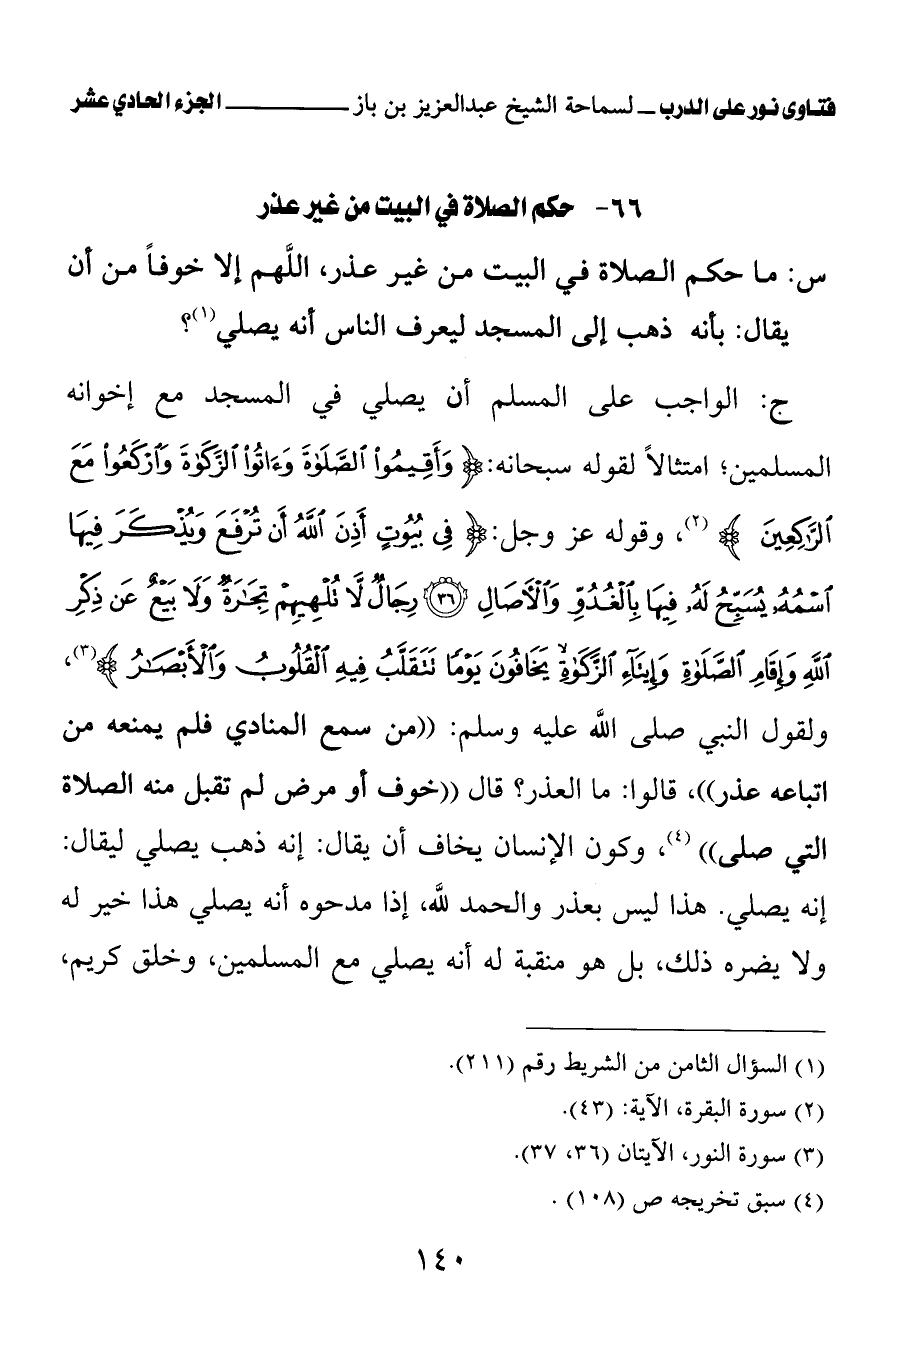 فتاوى نور على الدرب ــ لسماحة الشيخ عبدالعزيز بن باز ــــــــــــــ الجزء الحادي عشر
٦٦- حكم الصلاة في البيت من غير عذر
س: ما حكم الصلاة في البيت من غير عذر، اللَّهم إلا خوفاً من أن
يقال: بأنه ذهب إلى المسجد ليعرف الناس أنه يصلي(١)؟
ج: الواجب على المسلم أن يصلي في المسجد مع إخوانه
المسلمين؛ امتثالاً لقوله سبحانه: ﴿ وَأَقِيمُوا۟ ٱلصَّلَوٰةَ وَءَاتُوا۟ ٱلزَّكَوٰةَ وَٱرْكَعُوا۟ مَعَ
ٱلرَّٰكِعِينَ ﴾(٢)، وقوله عز وجل: ﴿ فِى بُيُوتٍ أَذِنَ ٱللَّهُ أَن تُرْفَعَ وَيُذْكَرَ فِيهَا
ٱسْمُهُۥ يُسَبِّحُ لَهُۥ فِيهَا بِٱلْغُدُوِّ وَٱلْءَاصَالِ ﴿٣٦﴾ رِجَالٌ لَّا تُلْهِيهِمْ تِجَٰرَةٌ وَلَا بَيْعٌ عَن ذِكْرِ
ٱللَّهِ وَإِقَامِ ٱلصَّلَوٰةِ وَإِيتَآءِ ٱلزَّكَوٰةِ ۙ يَخَافُونَ يَوْمًا تَتَقَلَّبُ فِيهِ ٱلْقُلُوبُ وَٱلْأَبْصَٰرُ ﴾(٣)،
ولقول النبي صلى اللَّه عليه وسلم: ((من سمع المنادي فلم يمنعه من
اتباعه عذر))، قالوا: ما العذر؟ قال ((خوف أو مرض لم تقبل منه الصلاة
التي صلى))(٤)، وكون الإنسان يخاف أن يقال: إنه ذهب يصلي ليقال:
إنه يصلي. هذا ليس بعذر والحمد للَّه، إذا مدحوه أنه يصلي هذا خير له
ولا يضره ذلك، بل هو منقبة له أنه يصلي مع المسلمين، وخلق كريم،
(١) السؤال الثامن من الشريط رقم (٢١١).
(٢) سورة البقرة، الآية: (٤٣).
(٣) سورة النور، الآيتان (٣٦، ٣٧).
(٤) سبق تخريجه ص (١٠٨) .
١٤٠